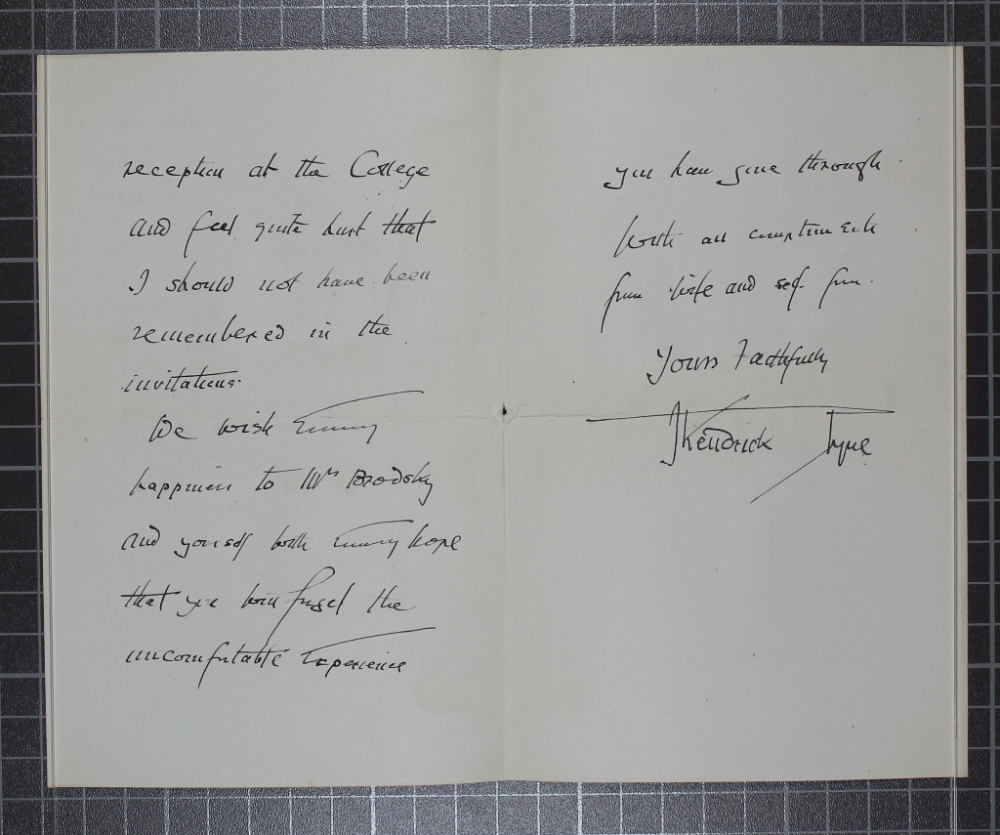 reception at the College
and feel quite hurt that
I should not have been
remembered in the
invitations.
We wish Every
happiness to Mrs Brodsky
and yourself with Every hope
that you will forget the
uncomfortable Experience
you have gone through.
With all compliments
from wife and self from.
Yours Faithfully
J Kendrick Pyne